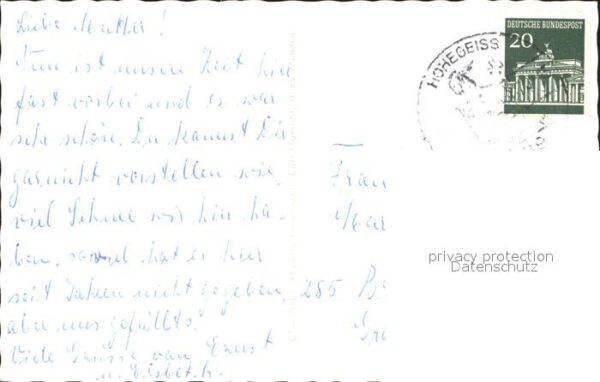 Liebe Mutter!
Nun ist unsere Zeit hier
fast vorbei und es war
sehr schön. Du kannst Dir
garnicht vorstellen wie
viel Schnee wir hier ha-
ben, soviel hat es hier
seit Jahren nicht gegeben,
aber uns gefällts.
Viele Grüsse von Ernst
u. Elsbeth.
DEUTSCHE BUNDESPOST
20
HOHEGEISS
Frau
285
privacy protection
Datenschutz